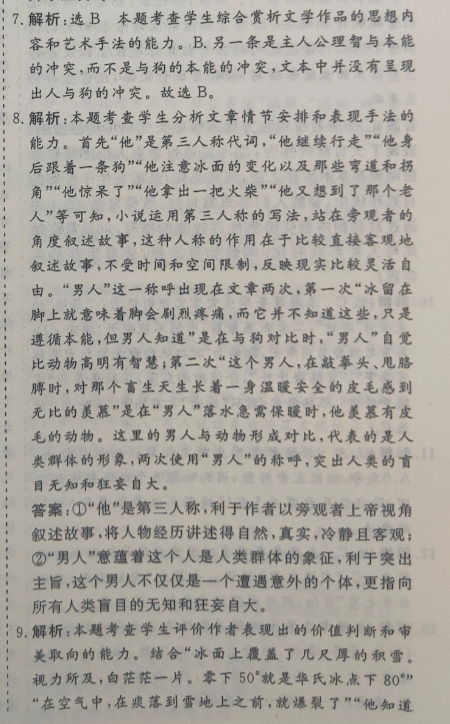 7. 解析:选 B　本题考查学生综合赏析文学作品的思想内
容和艺术手法的能力。B.另一条是主人公理智与本能
的冲突,而不是与狗的本能的冲突,文本中并没有呈现
出人与狗的冲突。故选 B。
8. 解析:本题考查学生分析文章情节安排和表现手法的
能力。首先“他”是第三人称代词,“他继续行走”“他身
后跟着一条狗”“他注意冰面的变化以及那些弯道和拐
角”“他惊呆了”“他拿出一把火柴”“他又想到了那个老
人”等可知,小说运用第三人称的写法,站在旁观者的
角度叙述故事,这种人称的作用在于比较直接客观地
叙述故事,不受时间和空间限制,反映现实比较灵活自
由。“男人”这一称呼出现在文章两次,第一次“冰留在
脚上就意味着脚会剧烈疼痛,而它并不知道这些,只是
遵循本能,但男人知道”是在与狗对比时,“男人”自觉
比动物高明有智慧;第二次“这个男人,在敲拳头、甩胳
膊时,对那个畜生天生长着一身温暖安全的皮毛感到
无比的羡慕”是在“男人”落水急需保暖时,他羡慕有皮
毛的动物。这里的男人与动物形成对比,代表的是人
类群体的形象,两次使用“男人”的称呼,突出人类的盲
目无知和狂妄自大。
答案:①“他”是第三人称,利于作者以旁观者上帝视角
叙述故事,将人物经历讲述得自然,真实,冷静且客观;
②“男人”意蕴着这个人是人类群体的象征,利于突出
主旨,这个男人不仅仅是一个遭遇意外的个体,更指向
所有人类盲目的无知和狂妄自大。
9. 解析:本题考查学生评价作者表现出的价值判断和审
美取向的能力。结合“冰面上覆盖了几尺厚的积雪。
视力所及,白茫茫一片。零下 50°就是华氏冰点下 80°”
“在空气中,在痰落到雪地上之前,就爆裂了”“他知道